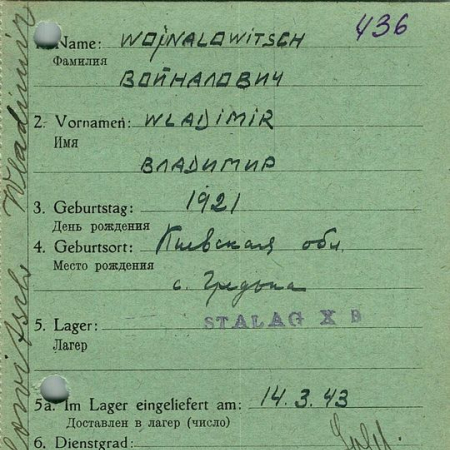 436
1. Name: WOJNALOWITSCH
Фамилия
ВОЙНАЛОВИЧ
2. Vornamen: WLADIMIR
Имя
ВЛАДИМИР
3. Geburtstag: 1921
День рождения
4. Geburtsort: Киевская обл.
Место рождения
с.
5. Lager: STALAG X B
Лагер
5a. Im Lager eingeliefert am: 14.3.43
Доставлен в лагер (число)
6. Dienstgrad: Sold.
Wladimir